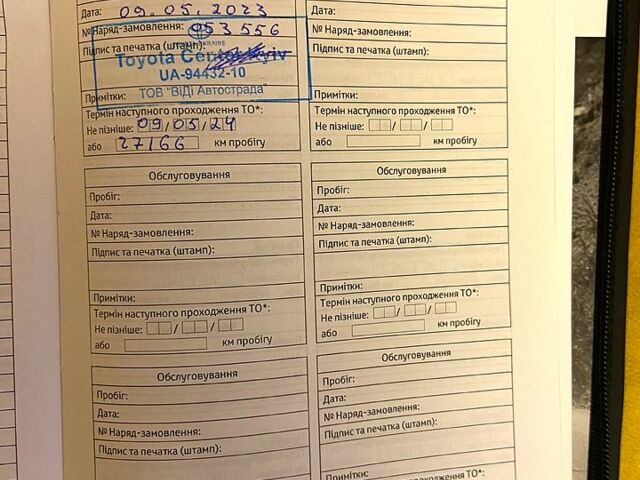 Дата: 09.05.2023
№ Наряд-замовлення: 953556
Підпис та печатка (штамп):
UKRAINE
Toyota Center Kyiv
UA-94432-10
Примітки: ТОВ "ВіДі Автострада"
Термін наступного проходження ТО*:
Не пізніше: 09/05/24
або 27166 км пробігу
Дата:
№ Наряд-замовлення:
Підпис та печатка (штамп):
Примітки:
Термін наступного проходження ТО*:
Не пізніше: / /
або км пробігу
Обслуговування
Пробіг:
Дата:
№ Наряд-замовлення:
Підпис та печатка (штамп):
Примітки:
Термін наступного проходження ТО*:
Не пізніше: / /
або км пробігу
Обслуговування
Пробіг:
Дата:
№ Наряд-замовлення:
Підпис та печатка (штамп):
Примітки:
Термін наступного проходження ТО*:
Не пізніше: / /
або км пробігу
Обслуговування
Пробіг:
Дата:
№ Наряд-замовлення:
Підпис та печатка (штамп):
Обслуговування
Пробіг:
Дата:
№ Наряд-замовлення:
Підпис та печатка (штамп):
Примітки: